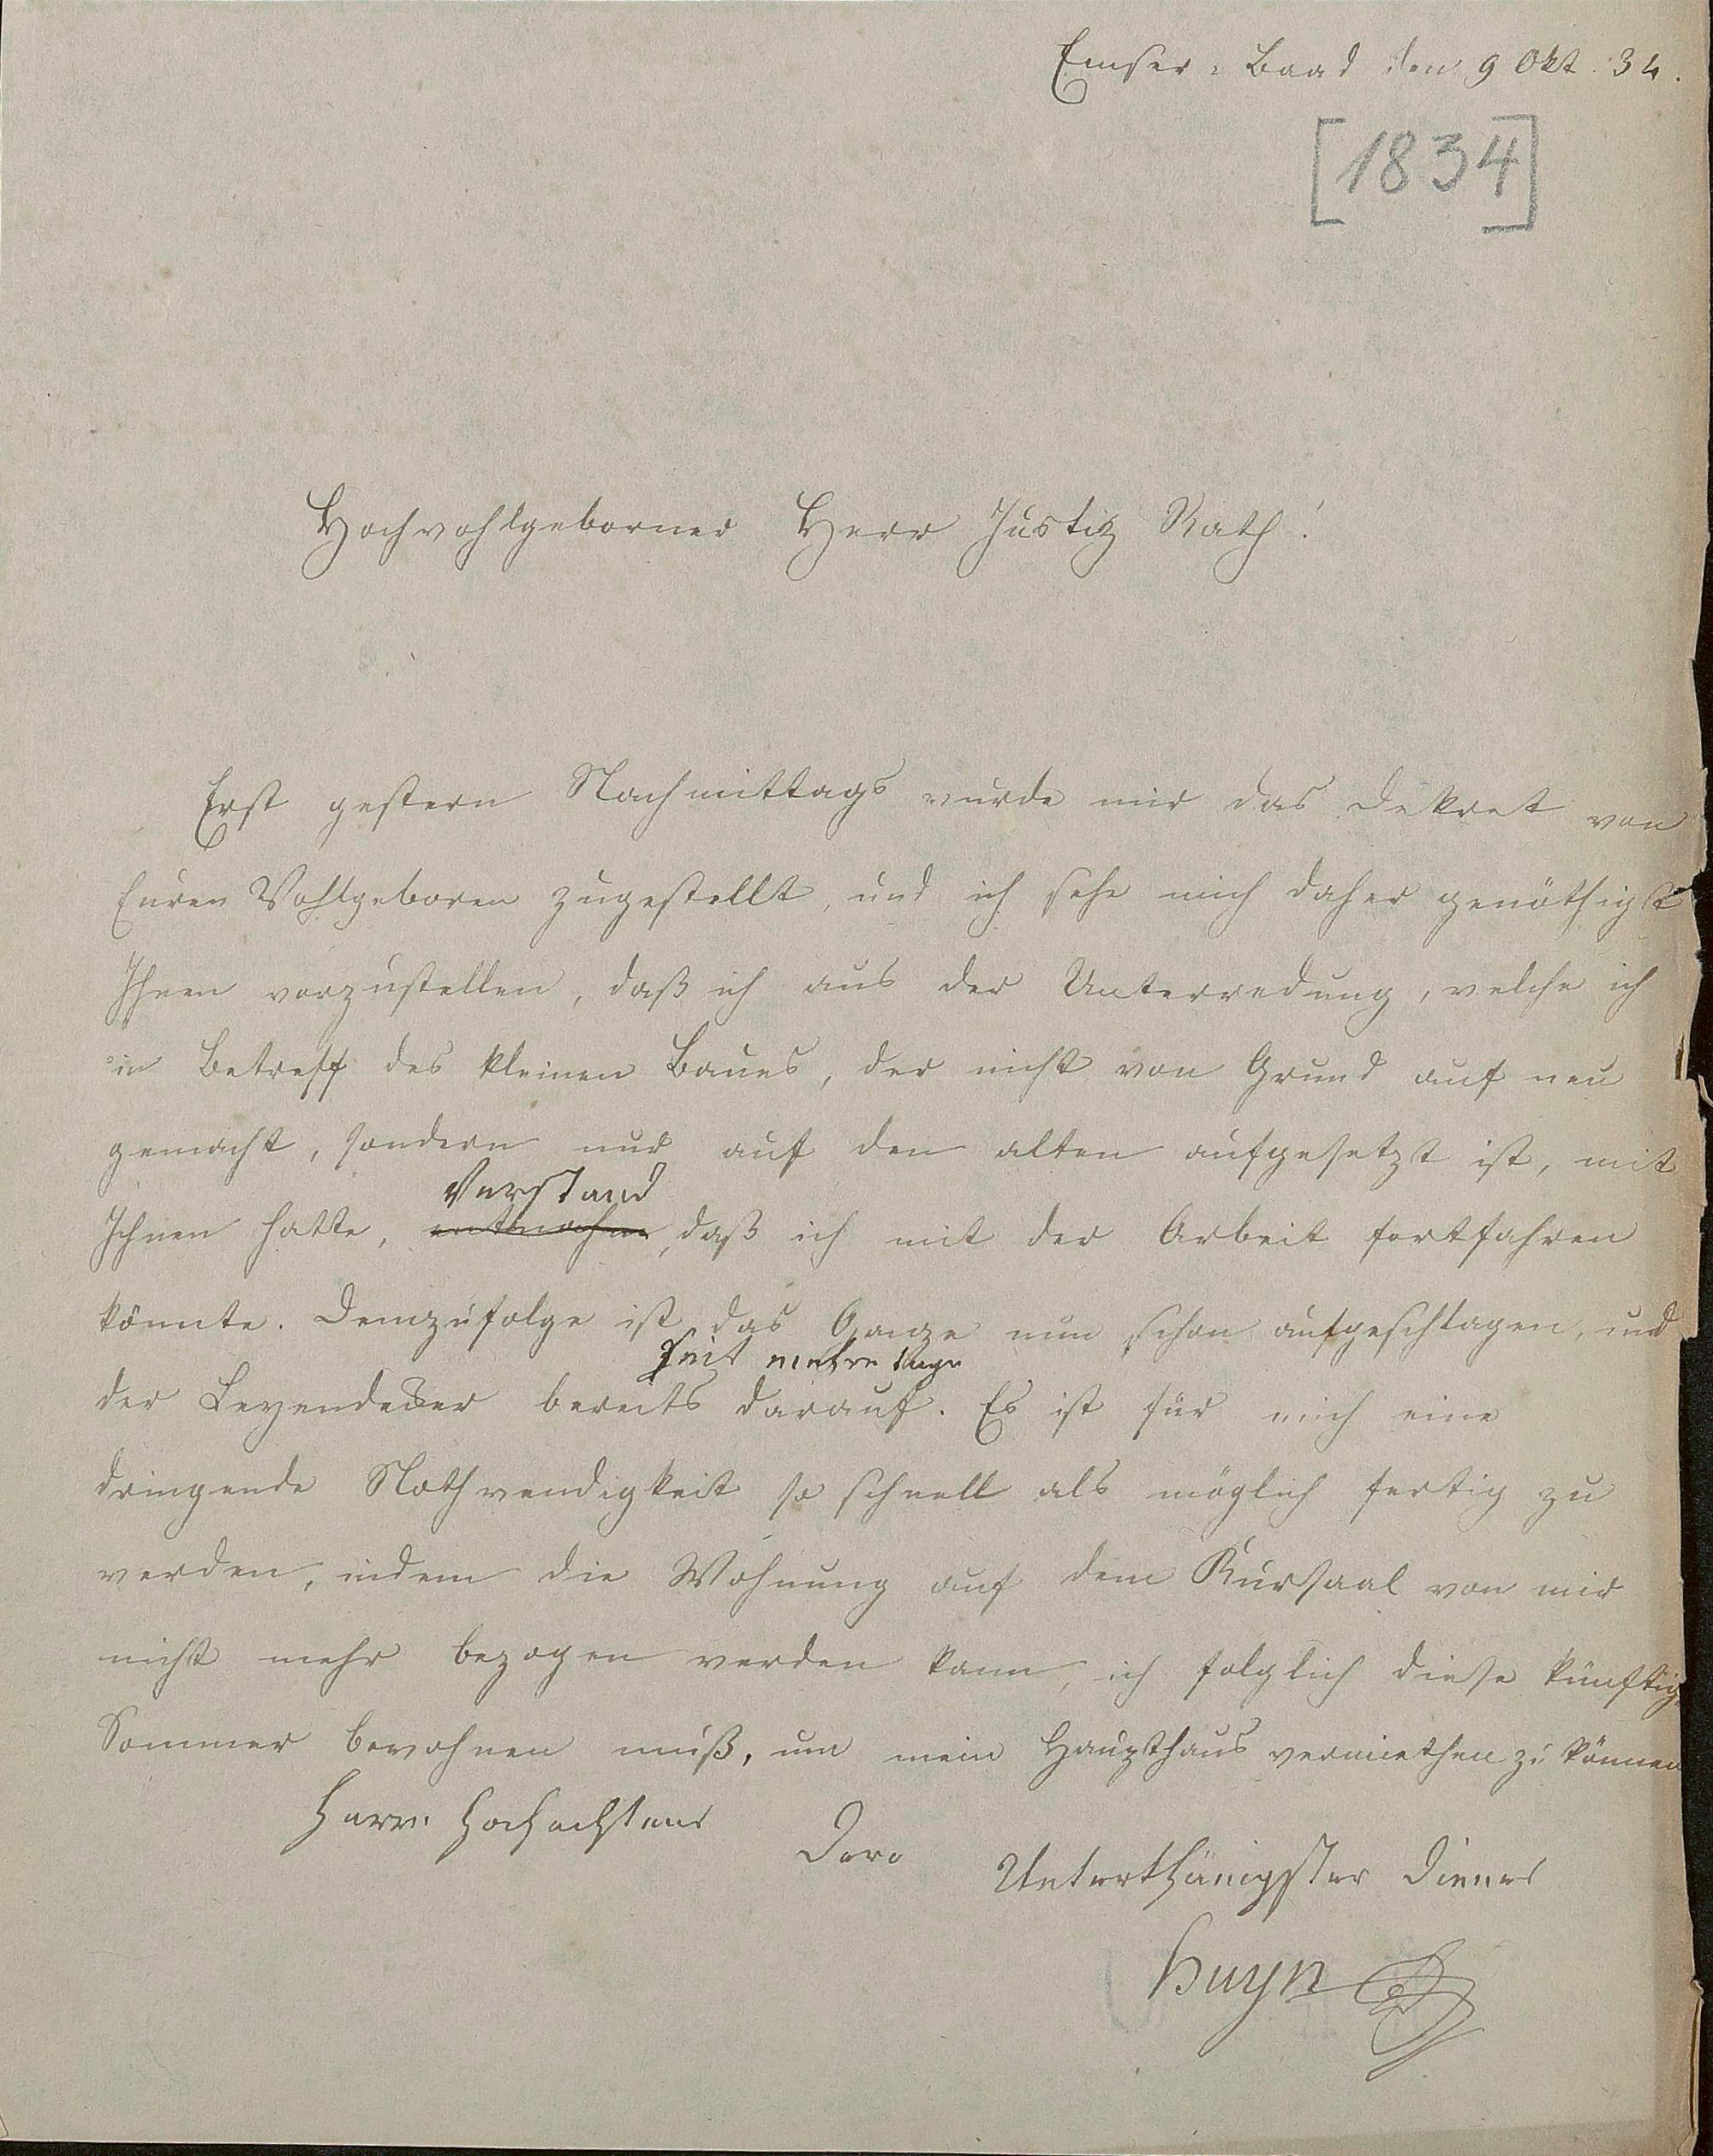 Emser-Baad den 9 Okt. 34.
[1834]
Hochwohlgeborner Herr Justiz Rath!
Erst gestern Nachmittags wurde mir das Dekret von
Euren Wohlgeboren zugestellt, und ich sehe mich daher genöthigt
Ihnen vorzustellen, daß ich aus der Unterredung, welche ich
in Betreff des kleinen Baues, der nicht von Grund auf neu
gemacht, sondern nur auf den alten aufgesetzt ist, mit
Verstand
Ihnen hatte, entnahm, daß ich mit der Arbeit fortfahren
könnte. Demzufolge ist das Ganze nun schon aufgeschlagen, und
seit mehre tage
der Leyendecker bereits darauf. Es ist für mich eine
dringende Nothwendigkeit so schnell als möglich fertig zu
werden, indem die Wohnung auf dem Kursaal von mir
nicht mehr bezogen werden kann, ich folglich diese künftig
Sommer bewohnen muß, um mein Haupthaus vermiethen zu können
Dero
Unterthänigster Diener
Huyn